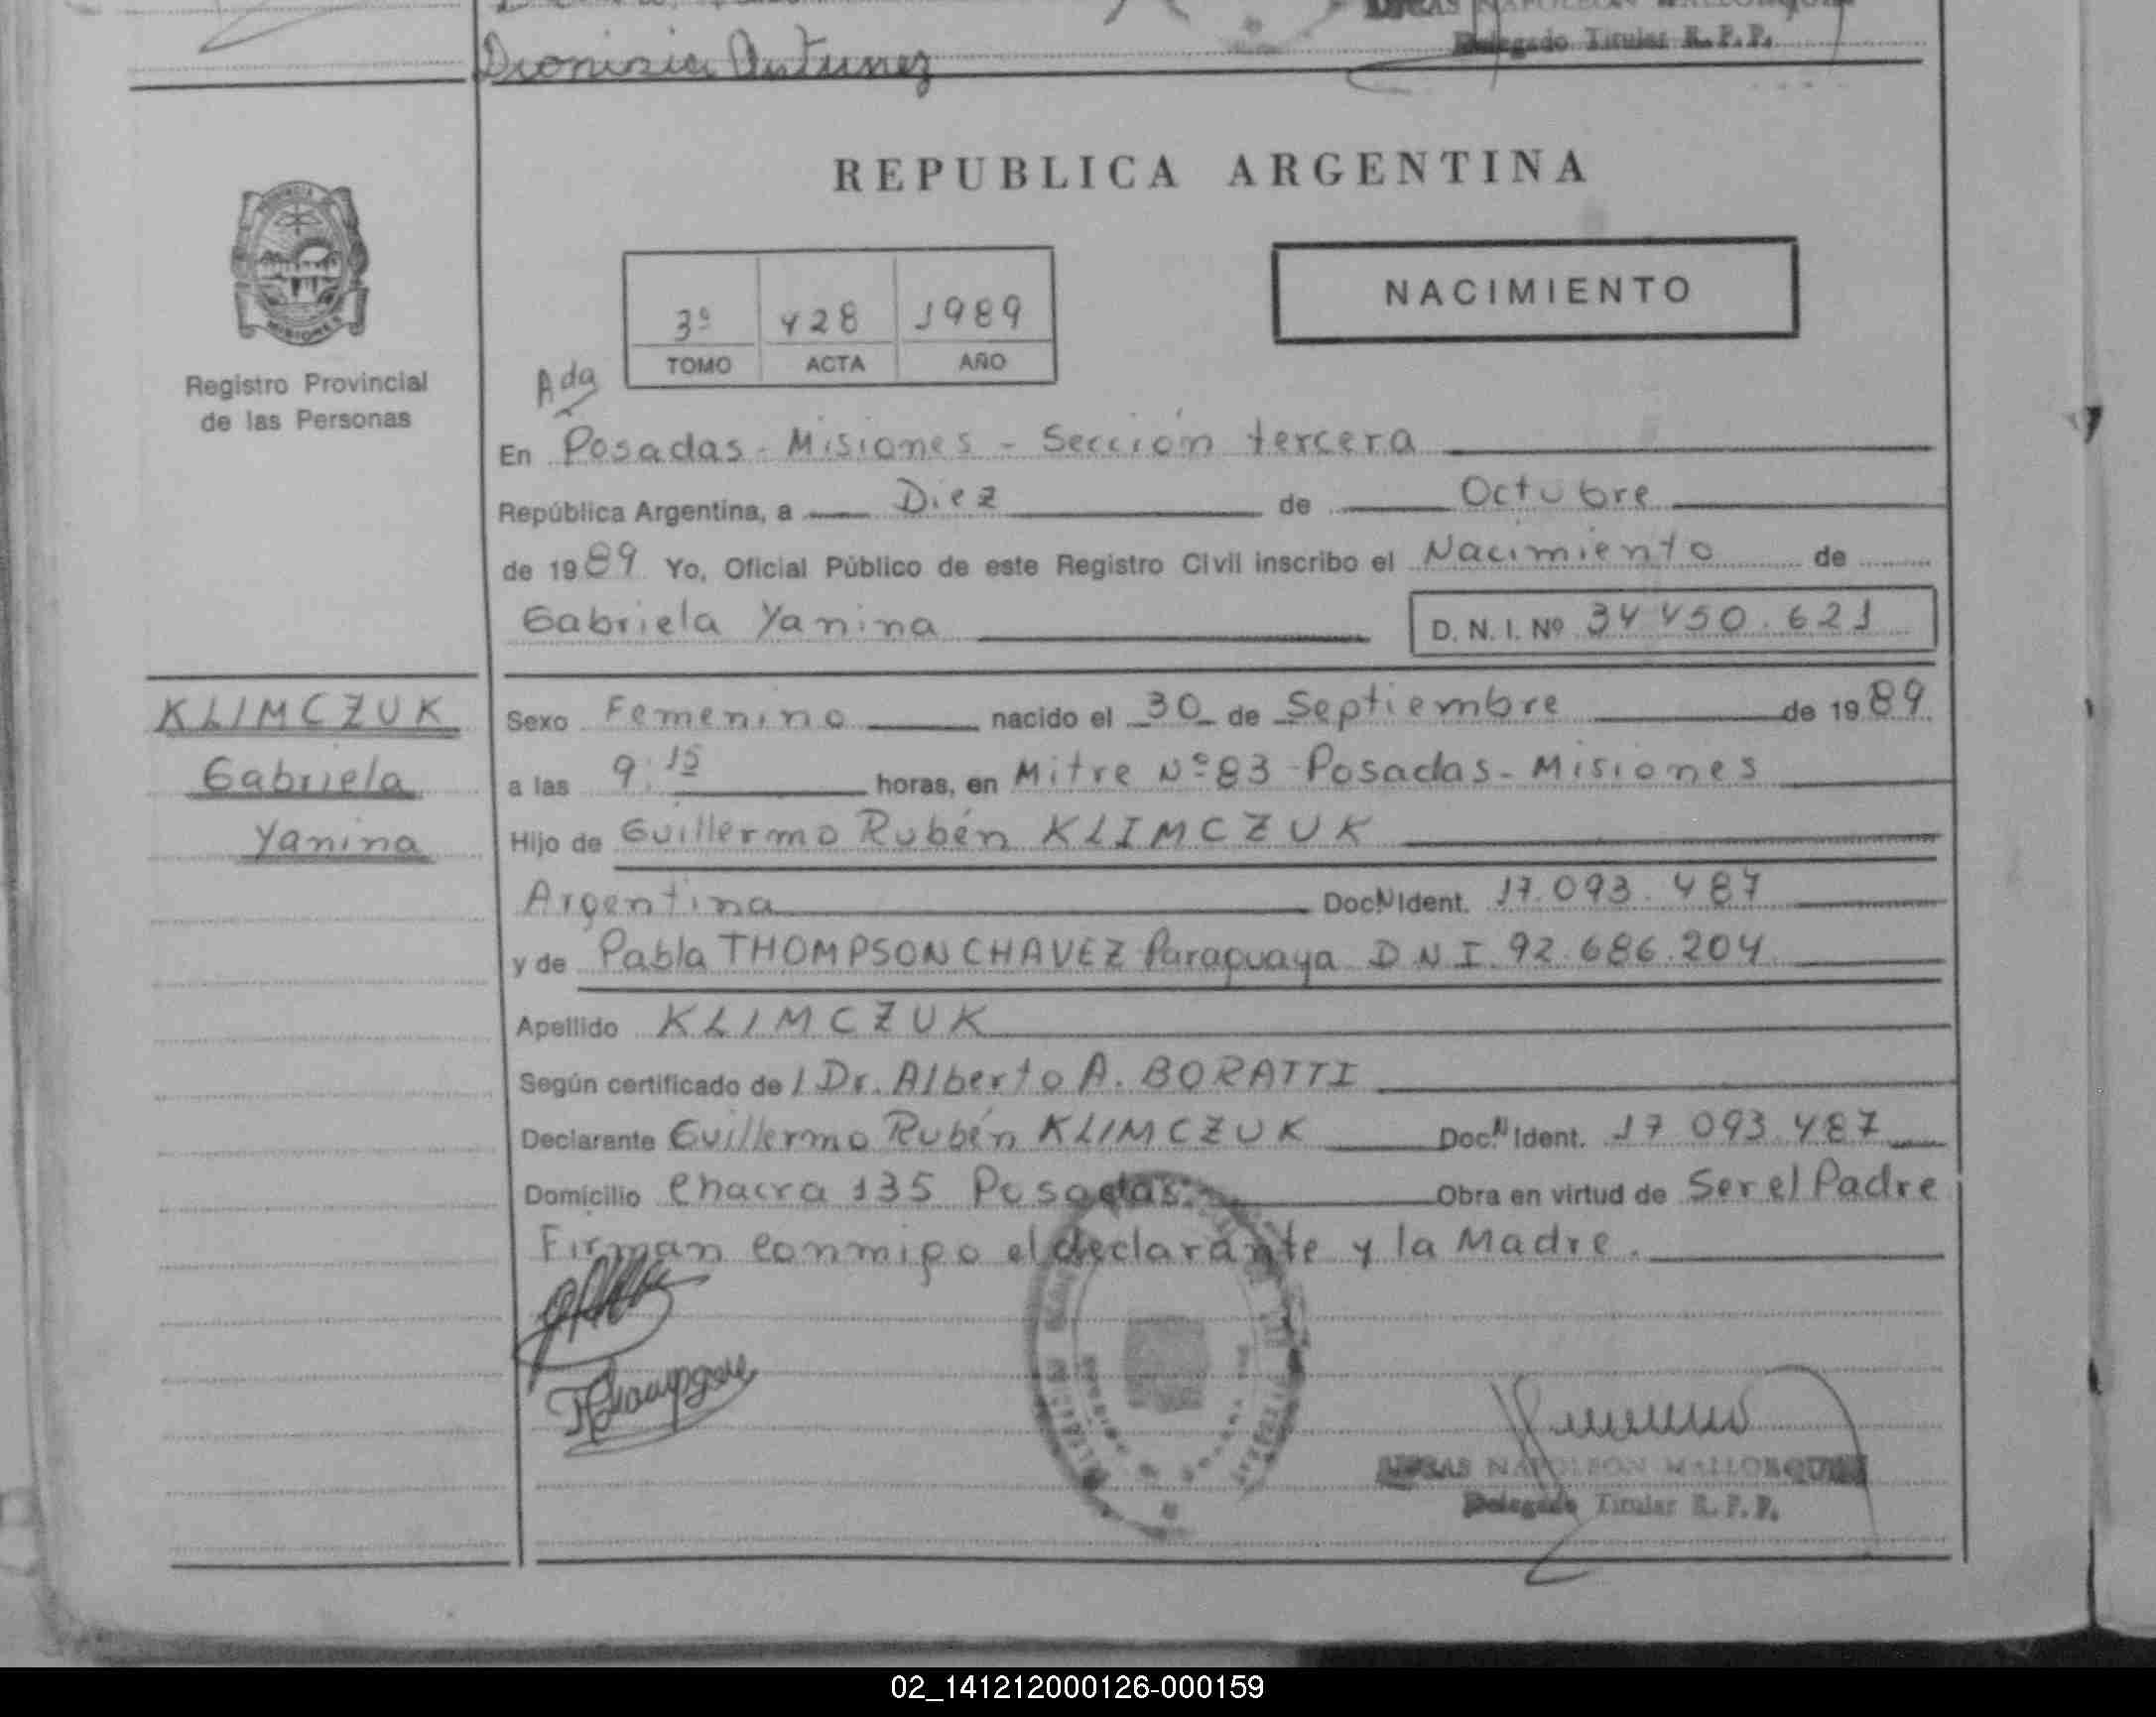 Dionisia Antunez
Delegado Titular R.P.P.
REPUBLICA ARGENTINA
NACIMIENTO
3º 428 1989
TOMO ACTA AÑO
Registro Provincial
de las Personas
Ada
En Posadas - Misiones - Sección tercera
República Argentina, a Diez de Octubre
de 1989 Yo, Oficial Público de este Registro Civil inscribo el Nacimiento de
Gabriela Yanina D. N. I. Nº 34 450.621
KLIMCZUK
Gabriela
Yanina
Sexo Femenino nacido el 30 de Septiembre de 1989
a las 9.15 horas, en Mitre Nº 83 - Posadas - Misiones
Hijo de Guillermo Rubén KLIMCZUK
Argentina Doc.N Ident. 17.093.487
y de Pabla THOMPSON CHAVEZ Paraguaya D N I. 92.686.204
Apellido KLIMCZUK
Según certificado de / Dr. Alberto A. BORATTI
Declarante Guillermo Rubén KLIMCZUK Doc.N Ident. 17 093.487
Domicilio Chacra 135 Posadas. Obra en virtud de Ser el Padre
Firman conmigo el declarante y la Madre.
NAPOLEON MALLORQUIN
Delegado Titular R.P.P.
02_141212000126-000159